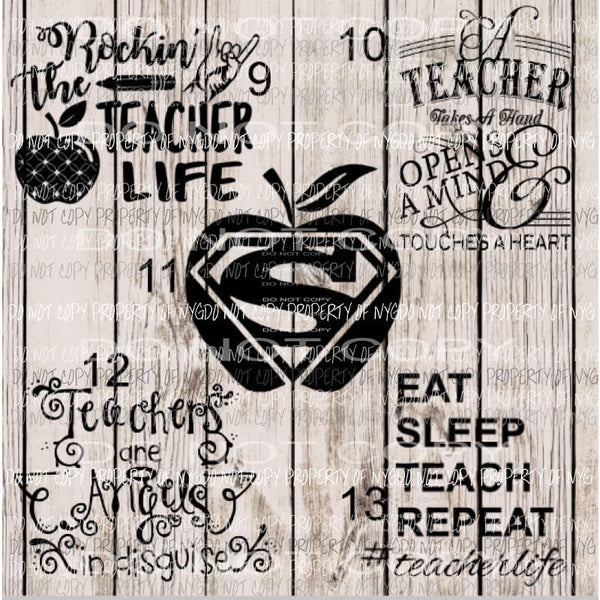 Rockin'
the
TEACHER
LIFE
9
10
A
TEACHER
Takes A Hand
OPENS
A MIND &
TOUCHES A HEART
11
S
DO NOT COPY
12
Teachers
are
Angels
in disguise
13
EAT
SLEEP
TEACH
REPEAT
#teacherlife
DO NOT COPY PROPERTY OF NYG